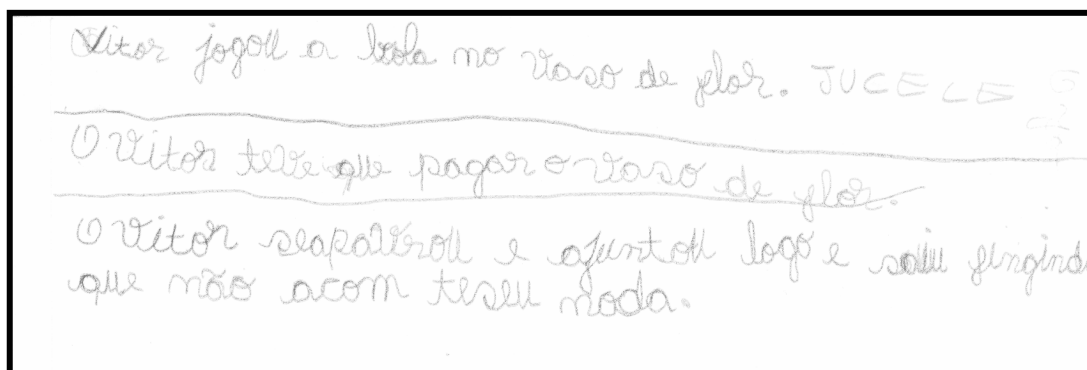 Vitor jogou a bola no vaso de flor. JUCELE
O Vitor teve que pagar o vaso de flor.
O Vitor seapavorou e ajuntou logo e saiu fingindo
que não acom teseu nada.